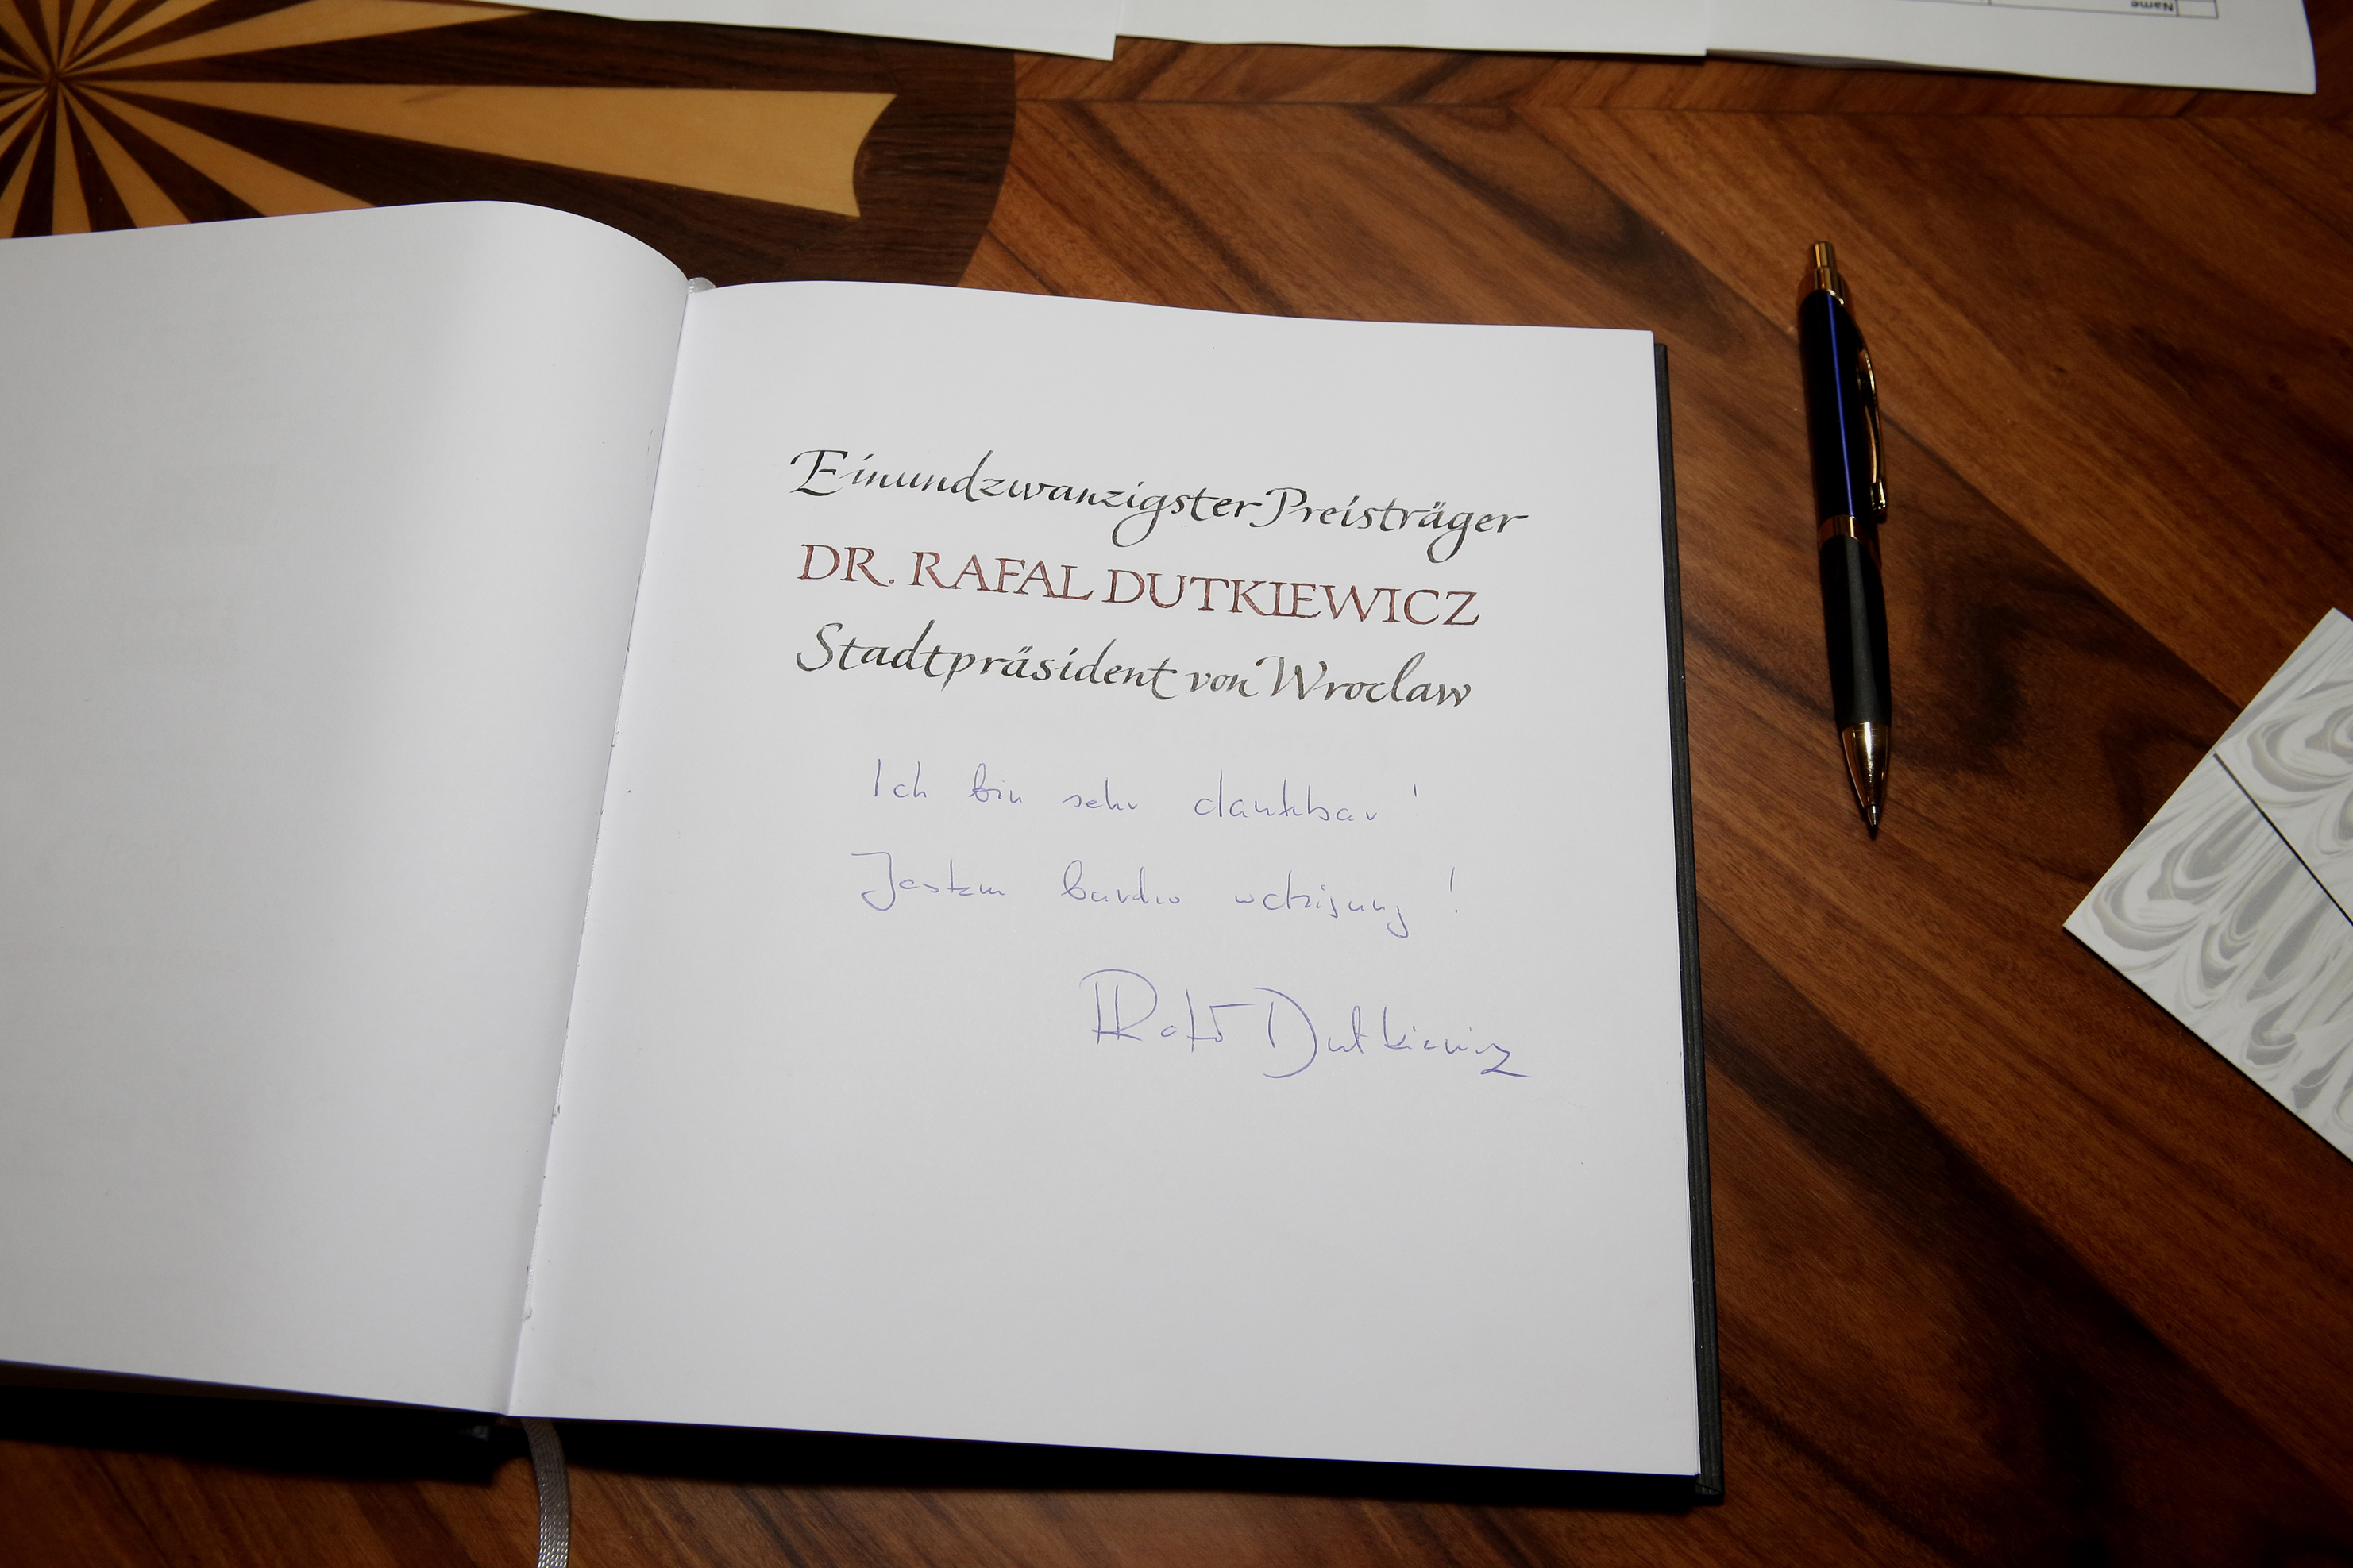 Name
Einundzwanzigster Preisträger
DR. RAFAL DUTKIEWICZ
Stadtpräsident von Wroclaw
Ich bin sehr dankbar!
Jestem bardzo wdzięczny!
Rafał Dutkiewicz